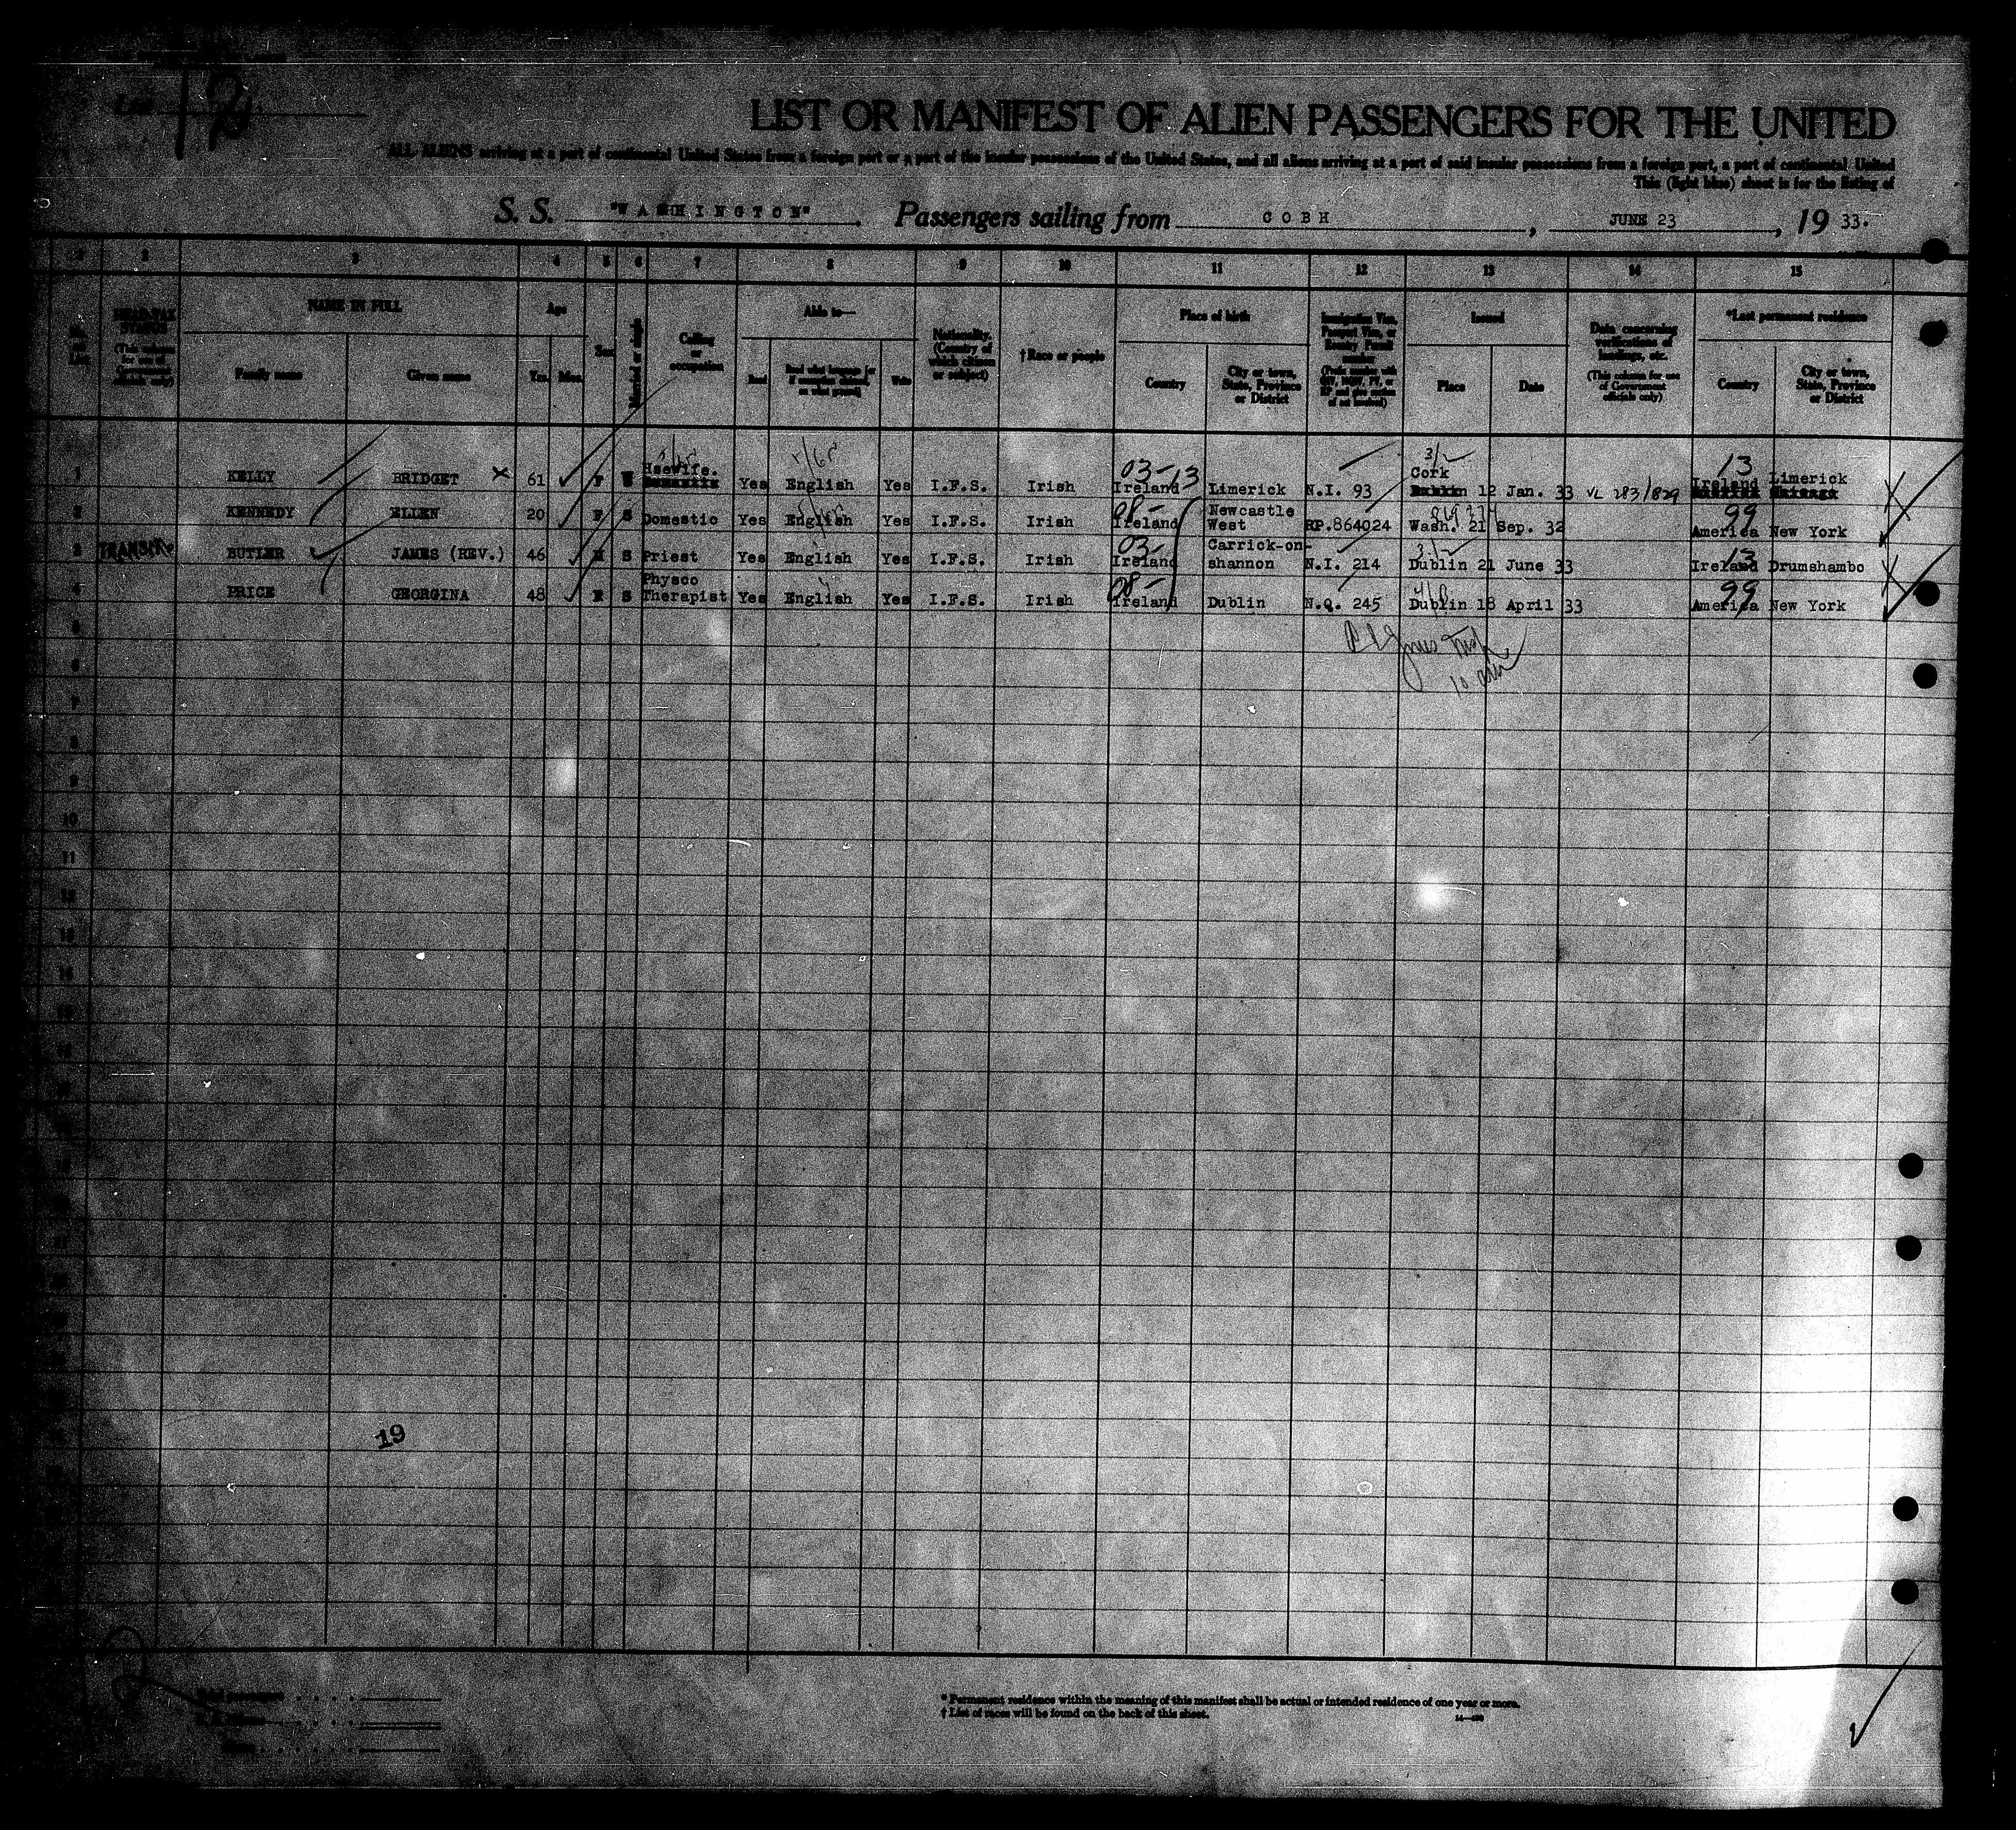 List 12
LIST OR MANIFEST OF ALIEN PASSENGERS FOR THE UNITED
ALL ALIENS arriving at a port of continental United States from a foreign port or a port of the insular possessions of the United States, and all aliens arriving at a port of said insular possessions from a foreign port, a port of continental United
This (light blue) sheet is for the listing of
S. S. "WASHINGTON" Passengers sailing from COBH, JUNE 23, 19 33.
1 2 3 4 5 6 7 8 9 10 11 12 13 14 15
No. on List
HEAD-TAX STATUS (This column for use of Government officials only)
NAME IN FULL
Family name
Given name
Age
Yrs. Mos.
Sex
Married or single
Calling or occupation
Able to—
Read
Read what language [or if exemption claimed, on what ground]
Write
Nationality. (Country of which citizen or subject)
†Race or people
Place of birth
Country
City or town, State, Province or District
Immigration Visa, Passport Visa, or Reentry Permit number
Issued
Place
Date
Data concerning verifications of landings, etc.
(This column for use of Government officials only)
*Last permanent residence
Country
City or town, State, Province or District
1 KELLY BRIDGET x 61 F W Hsewife. Yes English Yes I.F.S. Irish 03-13 Ireland Limerick N.I. 93 Cork 12 Jan. 33 VL 283/829 13 Ireland Limerick
2 KENNEDY ELLEN 20 F S Domestic Yes English Yes I.F.S. Irish 08- Ireland Newcastle West RP.864024 Wash. 21 Sep. 32 99 America New York
3 TRANSIT BUTLER JAMES (REV.) 46 M S Priest Yes English Yes I.F.S. Irish 03- Ireland Carrick-on-shannon N.I. 214 Dublin 21 June 33 13 Ireland Drumshambo
4 PRICE GEORGINA 48 F S Physco Therapist Yes English Yes I.F.S. Irish 08- Ireland Dublin N.Q. 245 Dublin 18 April 33 99 America New York
5
6
7
8
9
10
11
12
13
14
15
19
* Permanent residence within the meaning of this manifest shall be actual or intended residence of one year or more.
† List of races will be found on the back of this sheet.